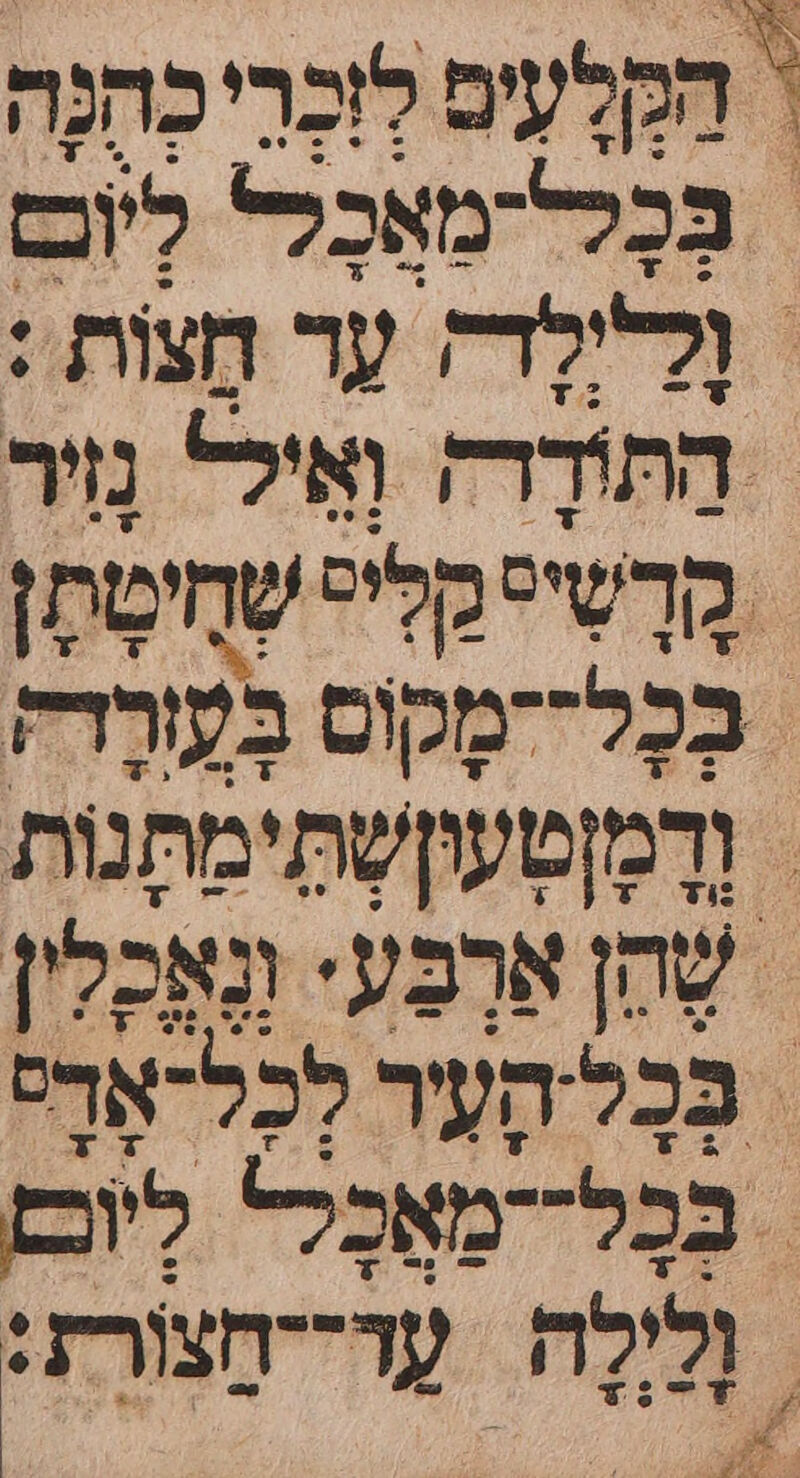 הַקְּלָעִים לְזִכְרֵי כְהֻנָּה
בְּכָל־מַאֲכָל לְיוֹם
וָלַיְלָה עַד חֲצוֹת :
הַתּוֹדָה וְאֵיל נָזִיר
קָדָשִׁים קַלִּים שְׁחִיטָתָן
בְּכָל־־מָקוֹם בָּעֲזָרָה
וְדָמָן טָעוּן שְׁתֵּי מַתָּנוֹת
שֶׁהֵן אַרְבַּע · וְנֶאֱכָלִין
בְּכָל־הָעִיר לְכָל־אָדָם
בְּכָל־־מַאֲכָל לְיוֹם
וָלַיְלָה עַד־־חֲצוֹת :